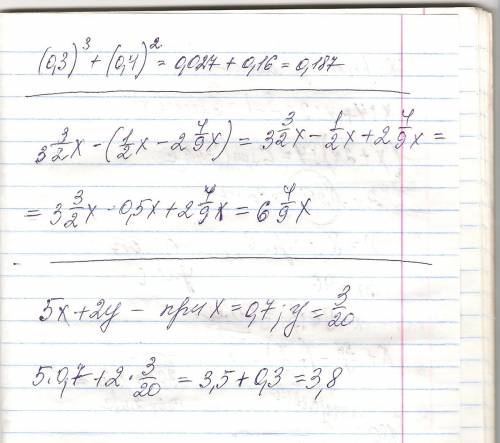 (0,3)³ + (0,4)² = 0,027 + 0,16 = 0,187
3 3/2 x - (1/2 x - 2 4/9 x) = 3 3/2 x - 1/2 x + 2 4/9 x =
= 3 3/2 x - 0,5x + 2 4/9 x = 6 4/9 x
5x + 2y - при x = 0,7; y = 3/20
5 · 0,7 + 2 · 3/20 = 3,5 + 0,3 = 3,8